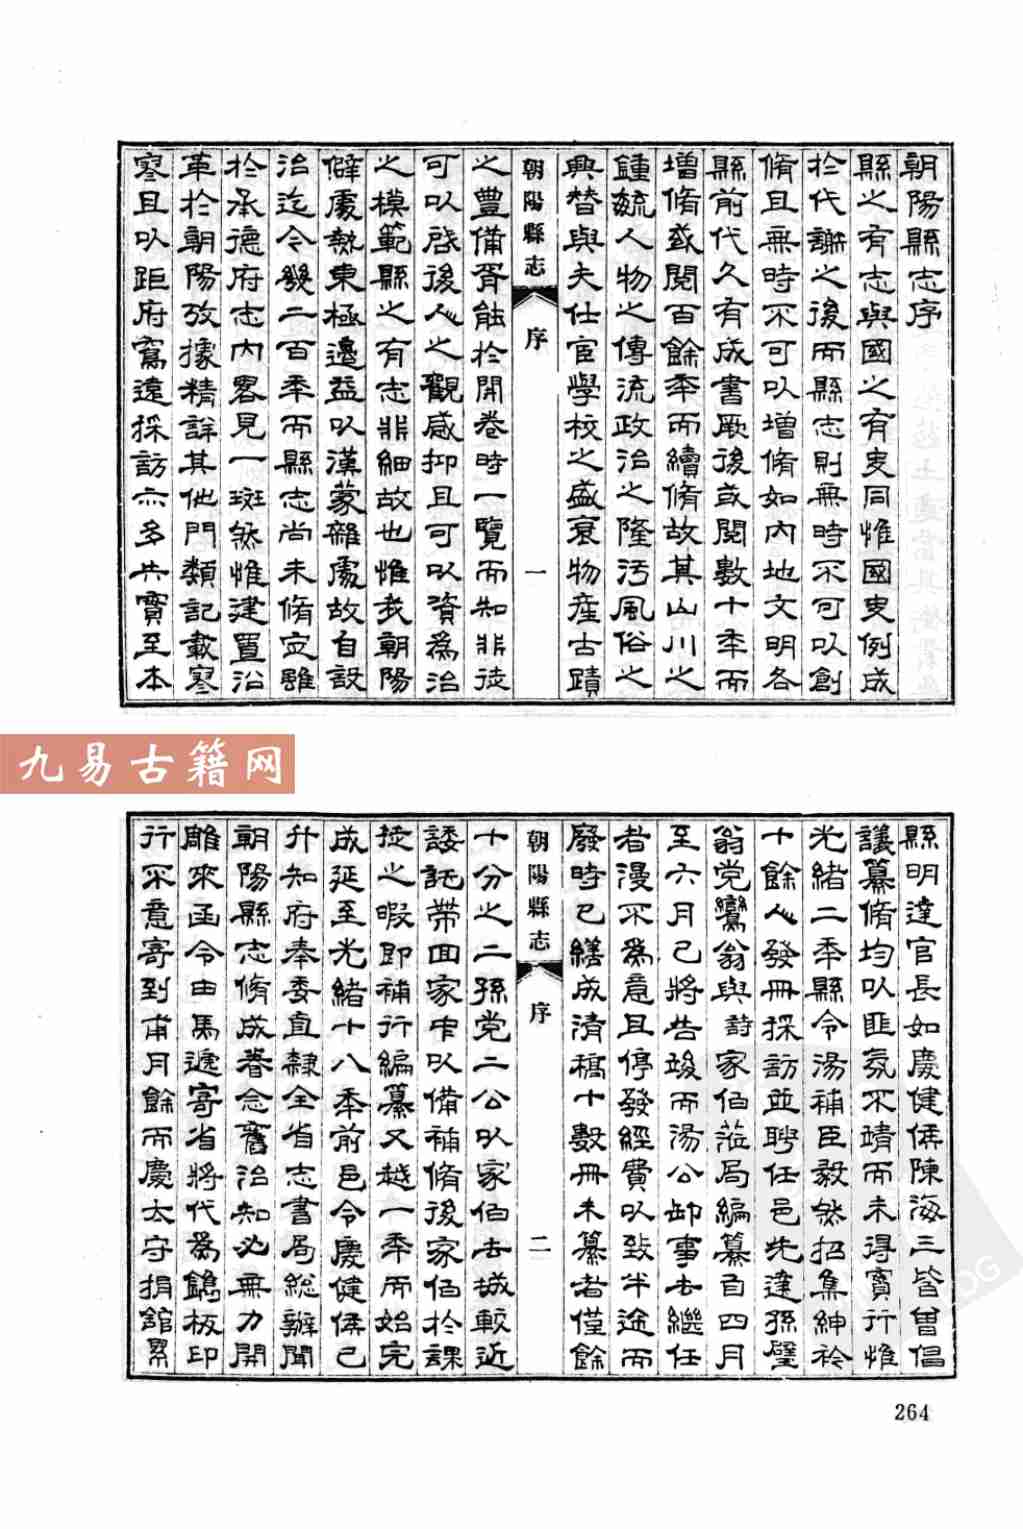 朝陽縣志序
縣之有志與國之有史同惟國史例成
於代謝之後而縣志則無時不可以創
脩且無時不可以增脩如內地文明各
縣前代久有成書厥後或閱數十年而
增脩或閱百餘年而續脩故其山川之
鍾毓人物之傳流政治之隆污風俗之
興替與夫仕宦學校之盛衰物產古蹟
朝陽縣志 序 一
之豐備胥能於開卷時一覽而知非徒
可以啟後人之觀感抑且可以資為治
之模範縣之有志非細故也惟我朝陽
僻處熱東極邊益以漢蒙雜處故自設
治迄今幾二百年而縣志尚未脩定雖
於承德府志內畧見一斑然惟建置沿
革於朝陽攷據精詳其他門類記載寥
寥且以距府窵遠採訪亦多失實至本
九易古籍网
縣明達官長如慶健侯陳海三皆曾倡
議纂脩均以匪氛不靖而未得實行惟
光緒二年縣令湯補臣毅然招集紳衿
十餘人發冊採訪並聘任邑先達孫璧
翁党鸞翁與 詩家伯蒞局編纂自四月
至六月已將告竣而湯公卸事去繼任
者漫不為意且停發經費以致半途而
廢時已繕成清稿十數冊未纂者僅餘
朝陽縣志 序 二
十分之二孫党二公以家伯去城較近
諉託帶回家中以備補脩後家伯於課
徒之暇即補行編纂又越一年而始完
成延至光緒十八年前邑令慶健侯已
升知府奉委直隸全省志書局總辦聞
朝陽縣志脩成眷念舊治知必無力開
雕來函令由馬遞寄省將代為鐫板印
行不意寄到甫月餘而慶太守捐館纍
264